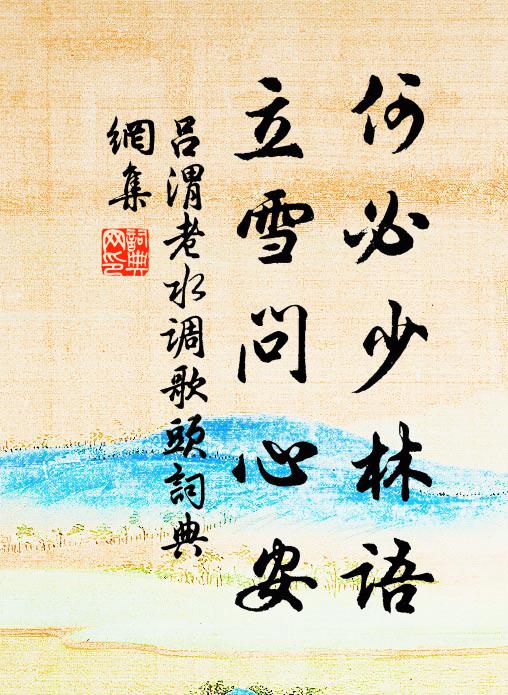 何必少林语
立雪问心安
吕渭老水调歌头词典
網集
詞典
网印